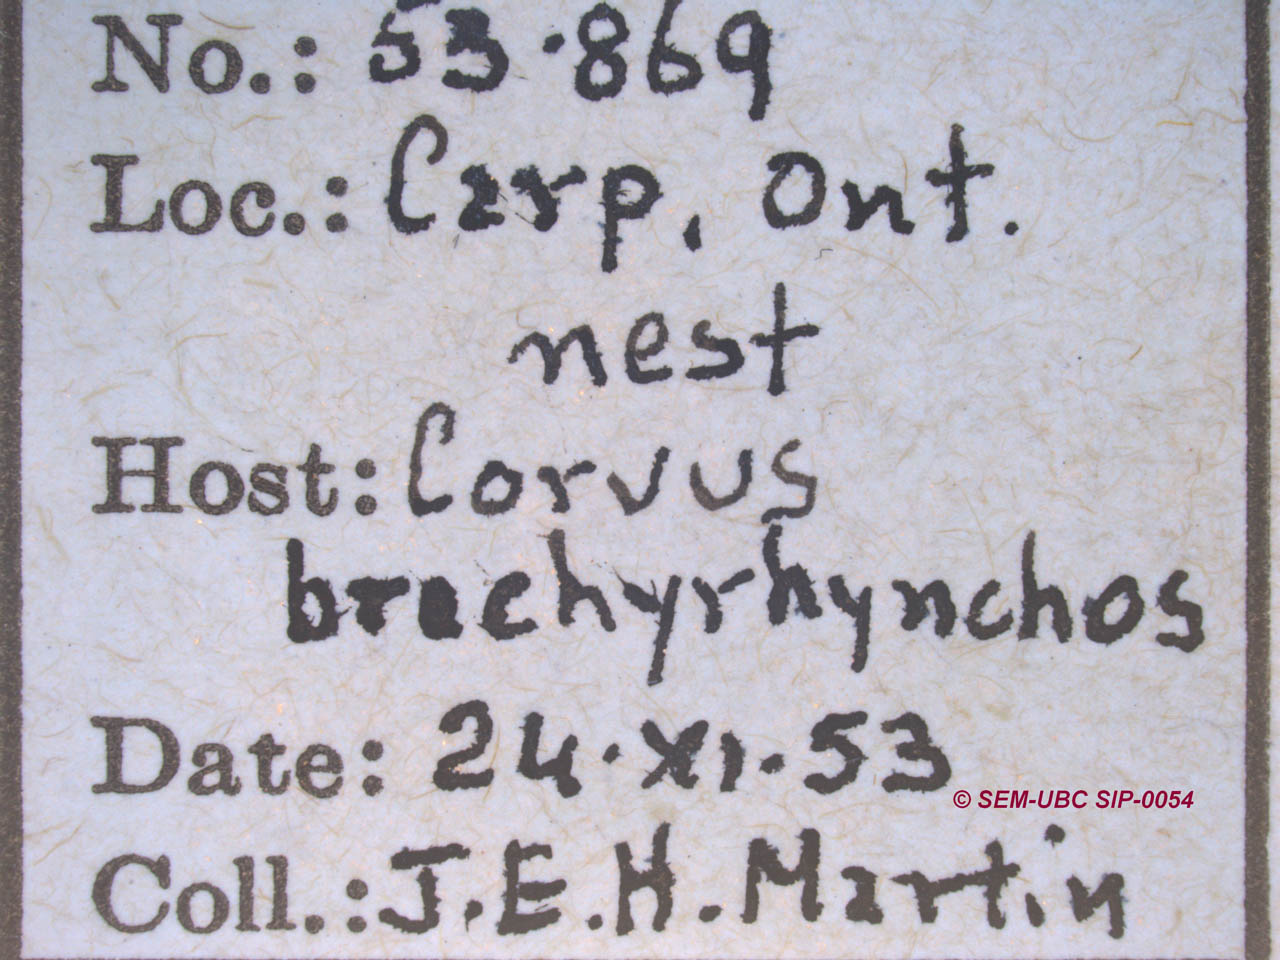 No.: 53·869
Loc.: Carp, Ont.
nest
Host: Corvus
brachyrhynchos
Date: 24·XI·53
© SEM-UBC SIP-0054
Coll.: J.E.H. Martin